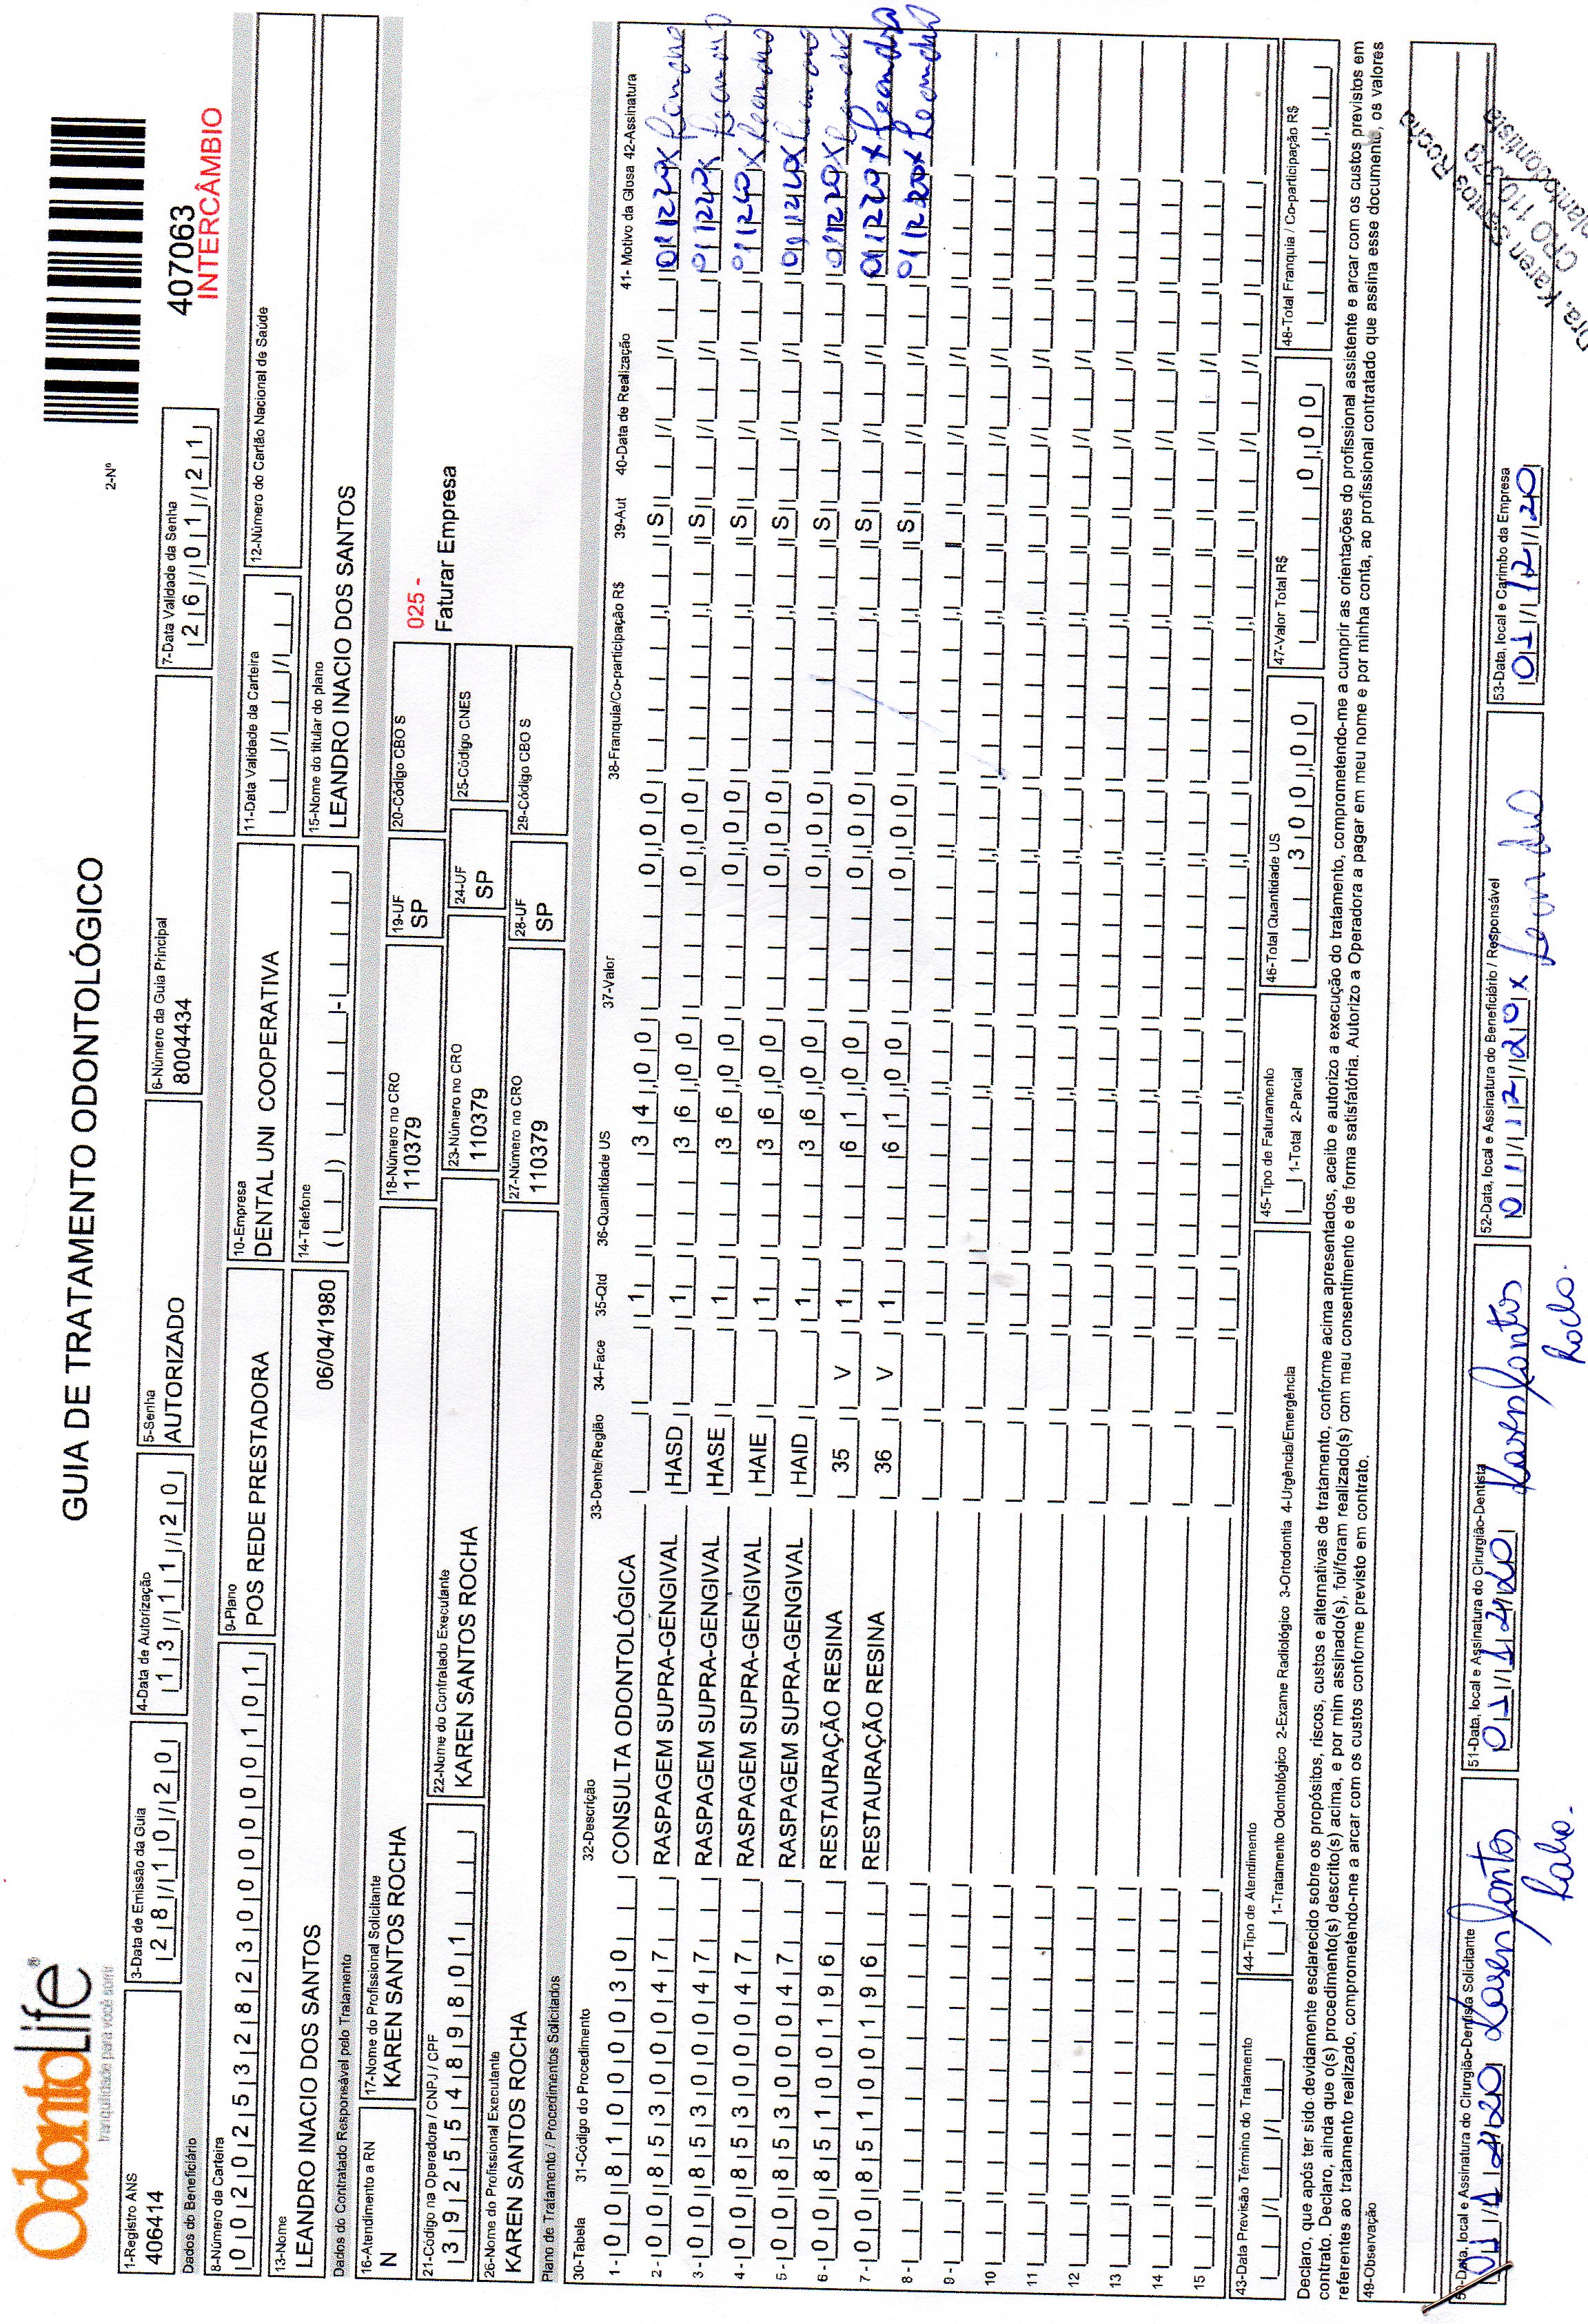 OdontoLife®
tranquilidade para você sorrir
GUIA DE TRATAMENTO ODONTOLÓGICO
2-Nº
407063
INTERCÂMBIO
1-Registro ANS
406414
3-Data de Emissão da Guia
28/10/20
4-Data de Autorização
13/11/20
5-Senha
AUTORIZADO
6-Número da Guia Principal
8004434
7-Data Validade da Senha
26/01/21
Dados do Beneficiário
8-Número da Carteira
00202532823000000101
9-Plano
POS REDE PRESTADORA
10-Empresa
DENTAL UNI COOPERATIVA
11-Data Validade da Carteira
12-Número do Cartão Nacional de Saúde
13-Nome
LEANDRO INACIO DOS SANTOS
06/04/1980
14-Telefone
15-Nome do titular do plano
LEANDRO INACIO DOS SANTOS
Dados do Contratado Responsável pelo Tratamento
16-Atendimento a RN
N
17-Nome do Profissional Solicitante
KAREN SANTOS ROCHA
18-Número no CRO
110379
19-UF
SP
20-Código CBO S
025 -
Faturar Empresa
21-Código na Operadora / CNPJ / CPF
39255489801
22-Nome do Contratado Executante
KAREN SANTOS ROCHA
23-Número no CRO
110379
24-UF
SP
25-Código CNES
26-Nome do Profissional Executante
KAREN SANTOS ROCHA
27-Número no CRO
110379
28-UF
SP
29-Código CBO S
Plano de Tratamento / Procedimentos Solicitados
30-Tabela 31-Código do Procedimento 32-Descrição 33-Dente/Região 34-Face 35-Qtd 36-Quantidade US 37-Valor 38-Franquia/Co-participação R$ 39-Aut 40-Data de Realização 41- Motivo da Glosa 42-Assinatura
1- 00 81000030 CONSULTA ODONTOLÓGICA 1 34,00 0,00 S 01/12/20 x Leandro
2- 00 85300047 RASPAGEM SUPRA-GENGIVAL HASD 1 36,00 0,00 S 01/12/20 x Leandro
3- 00 85300047 RASPAGEM SUPRA-GENGIVAL HASE 1 36,00 0,00 S 01/12/20 x Leandro
4- 00 85300047 RASPAGEM SUPRA-GENGIVAL HAIE 1 36,00 0,00 S 01/12/20 x Leandro
5- 00 85300047 RASPAGEM SUPRA-GENGIVAL HAID 1 36,00 0,00 S 01/12/20 x Leandro
6- 00 85100196 RESTAURAÇÃO RESINA 35 V 1 61,00 0,00 S 01/12/20 x Leandro
7- 00 85100196 RESTAURAÇÃO RESINA 36 V 1 61,00 0,00 S 01/12/20 x Leandro
8-
9-
10
11
12
13
14
15
43-Data Previsão Término do Tratamento
44-Tipo de Atendimento
1-Tratamento Odontológico 2-Exame Radiológico 3-Ortodontia 4-Urgência/Emergência
45-Tipo de Faturamento
1-Total 2-Parcial
46-Total Quantidade US
300,00
47-Valor Total R$
0,00
48-Total Franquia / Co-participação R$
Declaro, que após ter sido devidamente esclarecido sobre os propósitos, riscos, custos e alternativas de tratamento, conforme acima apresentados, aceito e autorizo a execução do tratamento, comprometendo-me a cumprir as orientações do profissional assistente e arcar com os custos previstos em
contrato. Declaro, ainda que o(s) procedimento(s) descrito(s) acima, e por mim assinado(s), foi/foram realizado(s) com meu consentimento e de forma satisfatória. Autorizo a Operadora a pagar em meu nome e por minha conta, ao profissional contratado que assina esse documento, os valores
referentes ao tratamento realizado, comprometendo-me a arcar com os custos conforme previsto em contrato.
49-Observação
50-Data, local e Assinatura do Cirurgião-Dentista Solicitante
01/12/20 Karen Santos
Rocha.
51-Data, local e Assinatura do Cirurgião-Dentista
01/12/20 Karen Santos
Rocha.
52-Data, local e Assinatura do Beneficiário / Responsável
01/12/20 x Leandro
53-Data, local e Carimbo da Empresa
01/12/20
Dra. Karen Santos Rocha
CRO 110379